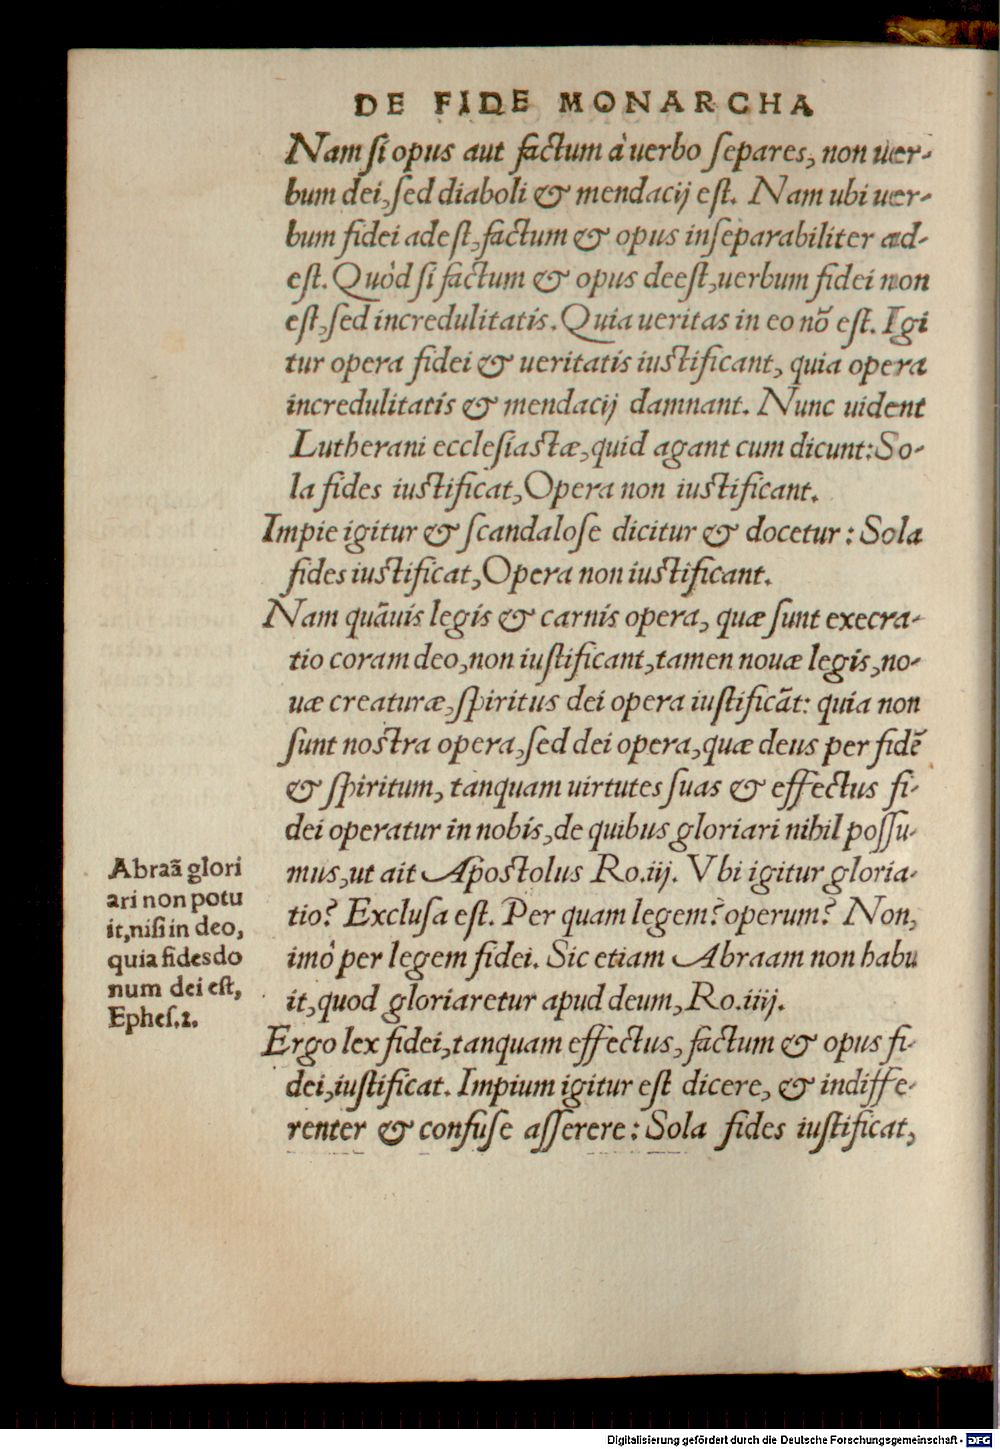 DE FIDE MONARCHA
Nam si opus aut factum à uerbo separes, non uer-
bum dei, sed diaboli & mendacij est. Nam ubi uer-
bum fidei adest, factum & opus inseparabiliter ad-
est. Quòd si factum & opus deest, uerbum fidei non
est, sed incredulitatis. Quia ueritas in eo nõ est. Igi
tur opera fidei & ueritatis iustificant, quia opera
incredulitatis & mendacij damnant. Nunc uident
Lutherani ecclesiastæ, quid agant cum dicunt: So-
la fides iustificat, Opera non iustificant.
Impie igitur & scandalose dicitur & docetur: Sola
fides iustificat, Opera non iustificant.
Nam quãuis legis & carnis opera, quæ sunt execra-
tio coram deo, non iustificant, tamen nouæ legis, no-
uæ creaturæ, spiritus dei opera iustificãt: quia non
sunt nostra opera, sed dei opera, quæ deus per fidẽ
& spiritum, tanquam uirtutes suas & effectus fi-
dei operatur in nobis, de quibus gloriari nihil possu-
mus, ut ait Apostolus Ro.iij. Vbi igitur gloria-
tio? Exclusa est. Per quam legem? operum? Non,
imò per legem fidei. Sic etiam Abraam non habu
it, quod gloriaretur apud deum, Ro.iiij.
Ergo lex fidei, tanquam effectus, factum & opus fi-
dei, iustificat. Impium igitur est dicere, & indiffe-
renter & confuse asserere: Sola fides iustificat,
Abraã glori
ari non potu
it, nisi in deo,
quia fides do
num dei est,
Ephes.2.
Digitalisierung gefördert durch die Deutsche Forschungsgemeinschaft - DFG